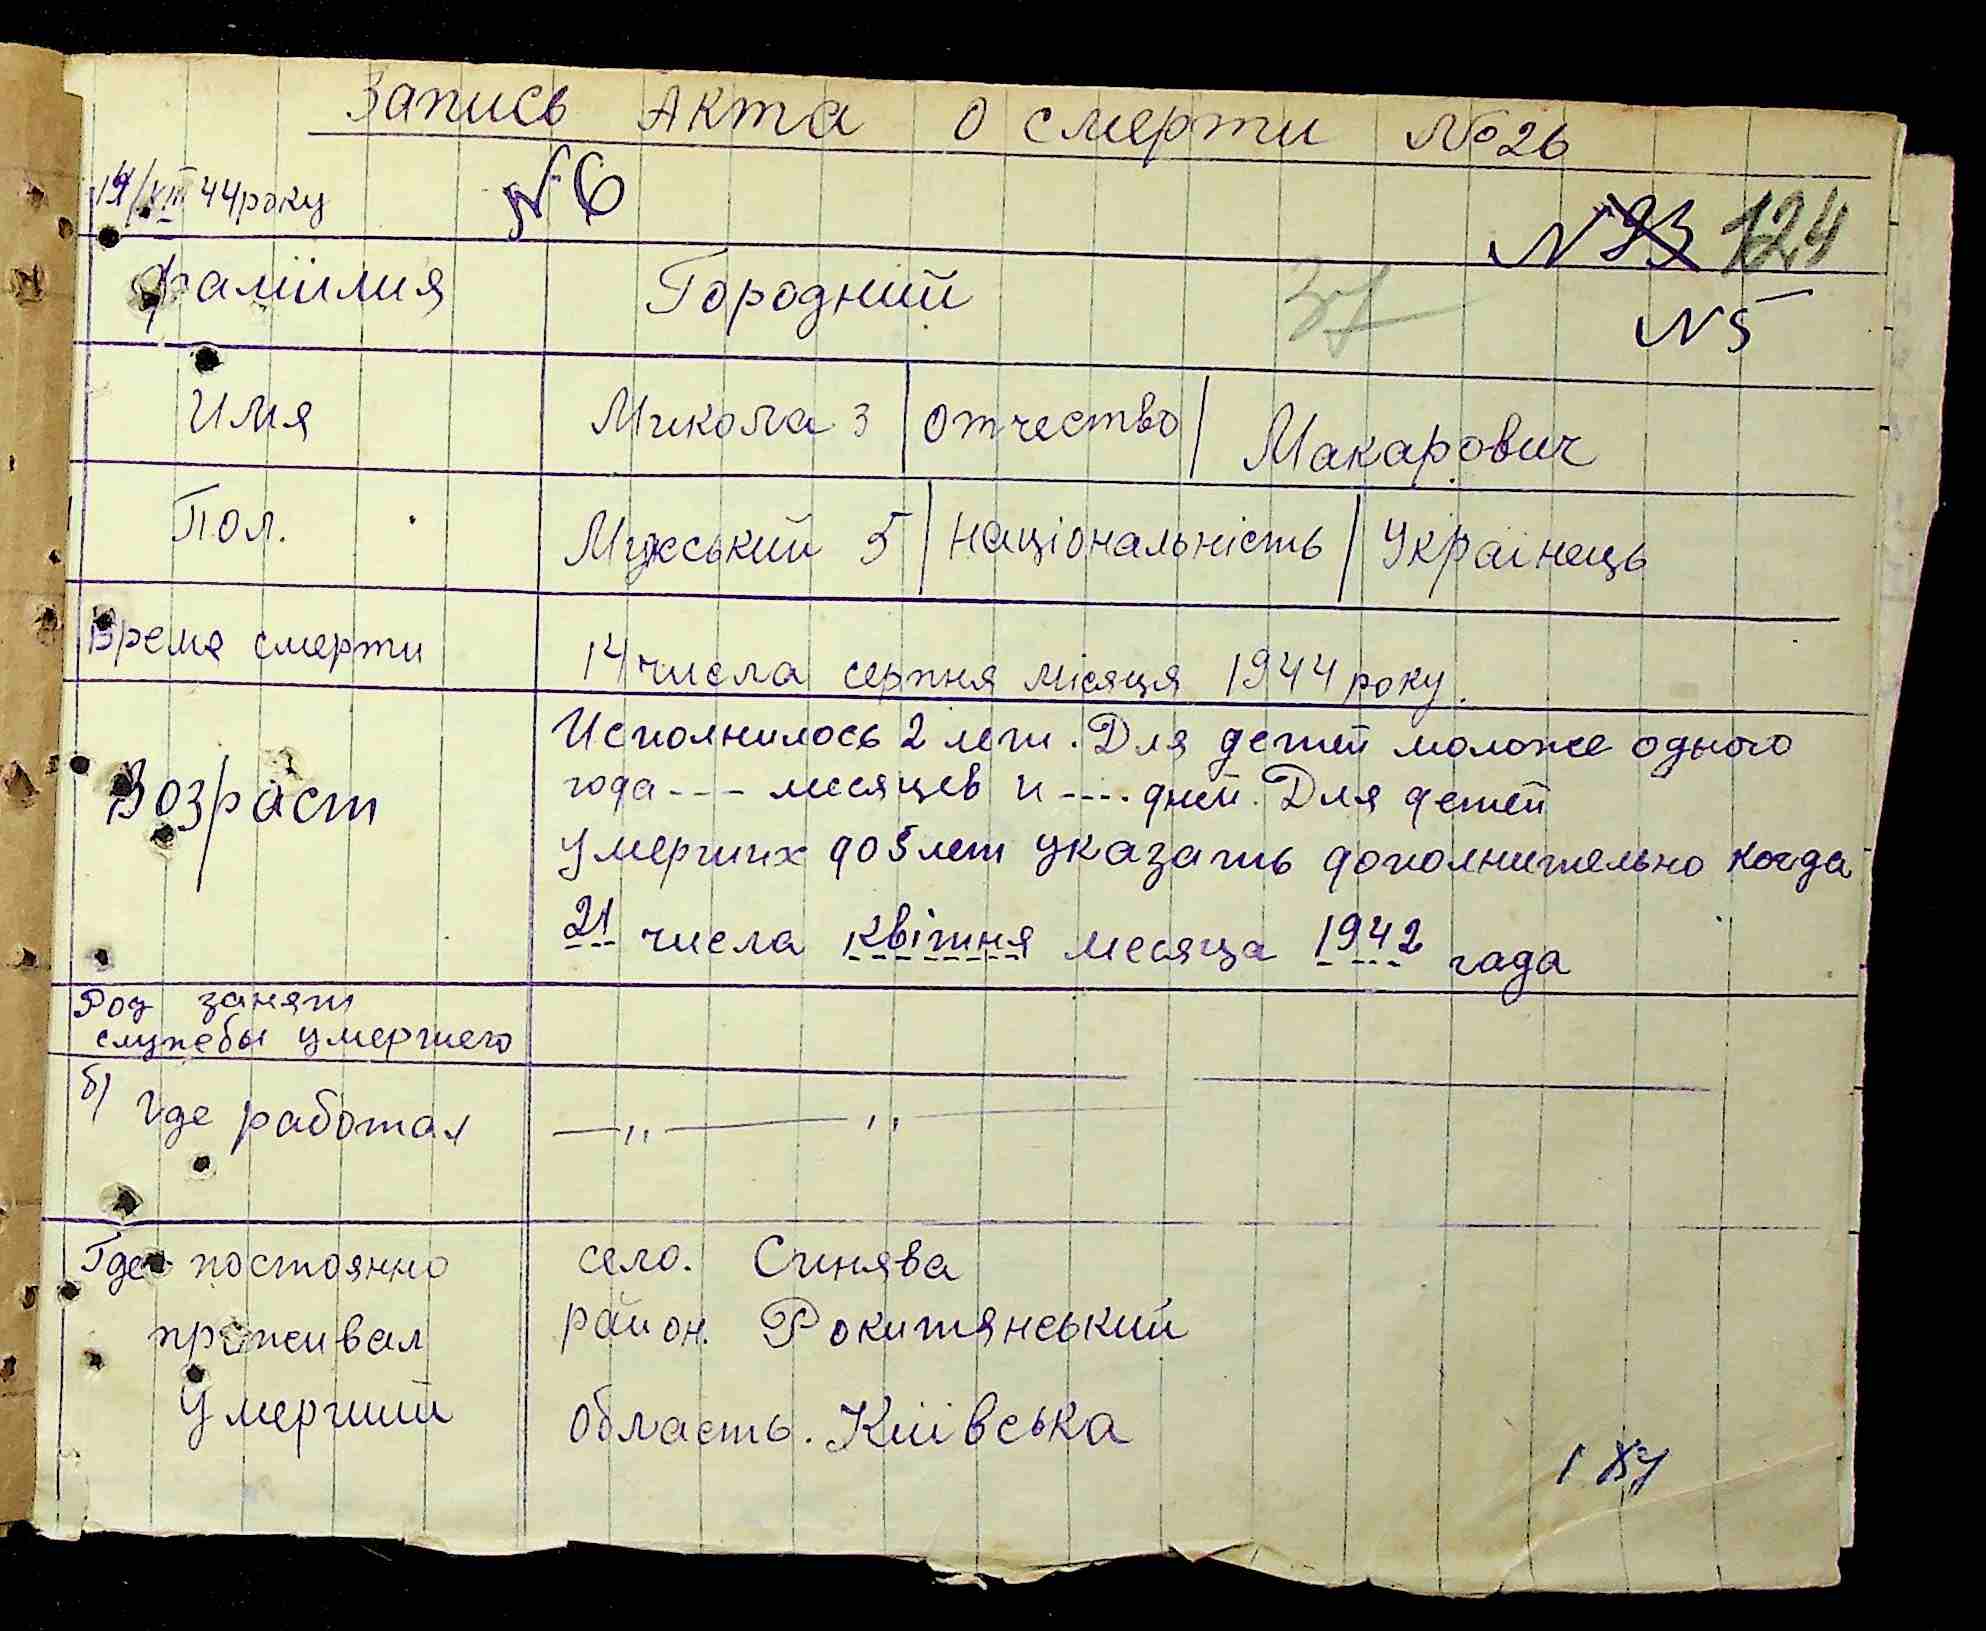 Запись Акта о смерти №26
44 року №6
№ 93 124
Фамилия Городний 37 №5
Имя Микола 3 Отчество Макарович
Пол. Мужський 5 Національність Українець
Время смерти 14 числа серпня місяця 1944 року.
Исполнилось 2 лет. Для детей моложе одного
Возраст года --- месяцев и ---- дней. Для детей
умерших до 5 лет указать дополнительно когда
21 числа квітня месяца 1942 года
Род занят
службы умершего
б) Где работал — „ — „ —
Где постоянно село. Синява
проживал район. Рокитянський
Умерший Область. Київська